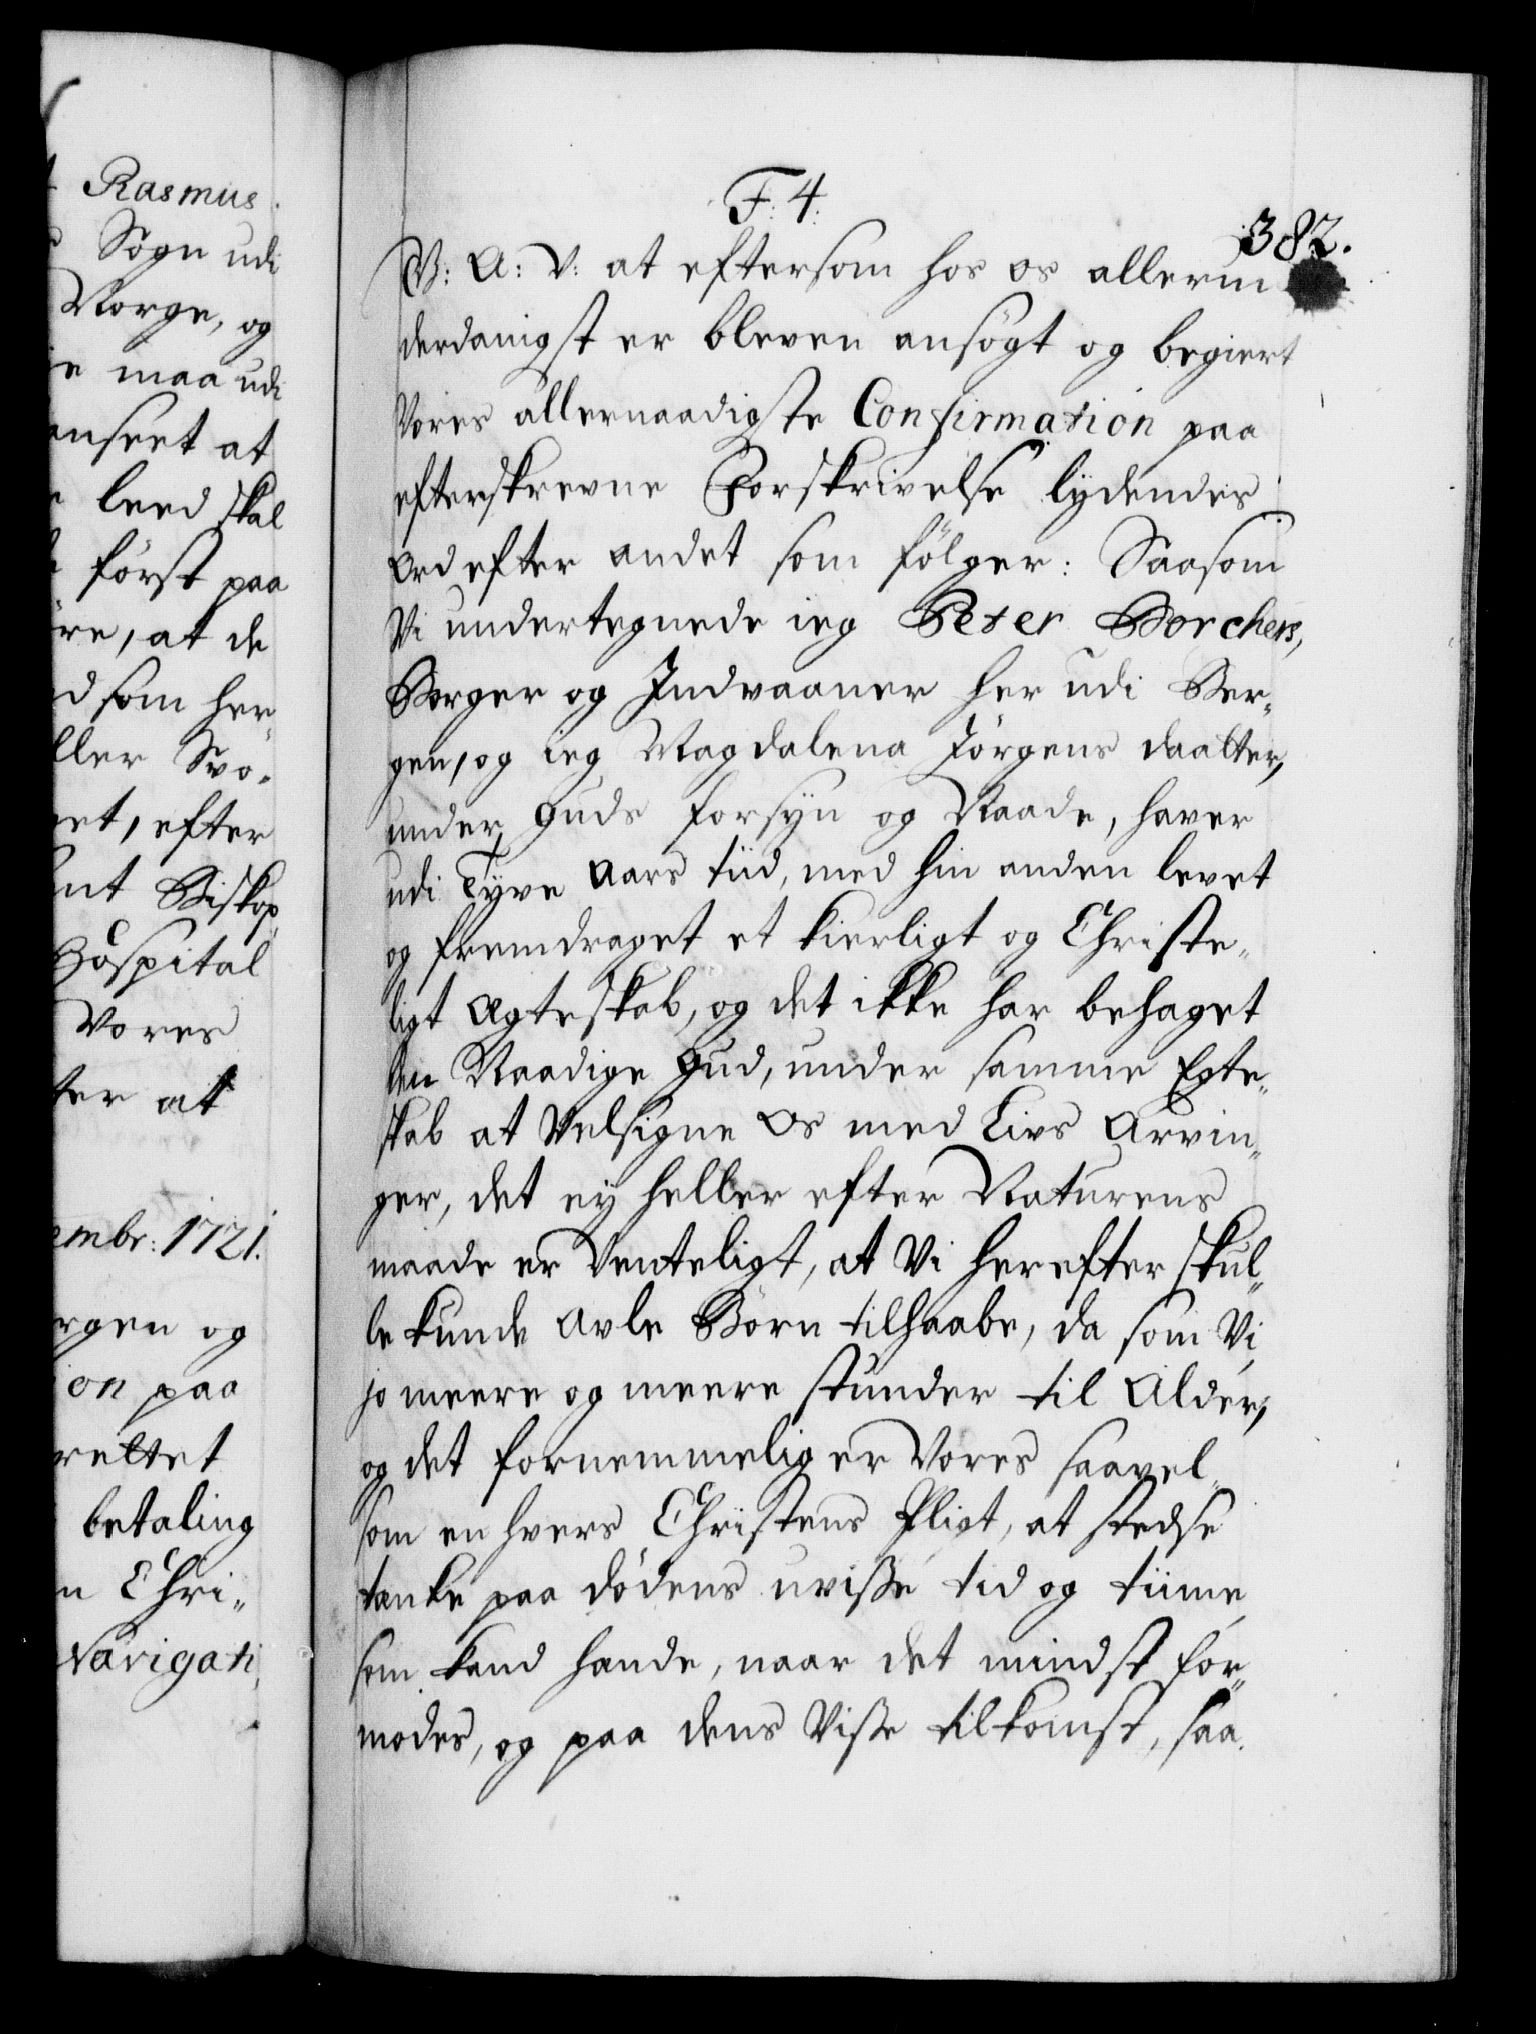 Rasmus
Sogn udi
Norge, og
maa udi
anseet at
leed skal
först paa
re, at de
d som her
ller Svo-
et, efter
nt Biskop
Hospital
Vores
ter at
embr: 1721.
rgen og
ion paa
rettet
betaling
n Chri-
Navigati
F: 4:
382.
G: A: V: at eftersom hos os allerun
derdanigst er bleven ansögt og begiert
Vores allernaadigste Confirmation paa
efterskrevne Forskrivelse lÿdendes
Ord efter andet som fölger: Saasom
Vi undertegnede ieg Peter Borchers,
Borger og Indvaaner her udi Ber-
gen, og ieg Magdalena Jörgens daatter,
under Guds forsÿn og Naade, haver
udi Tÿve Aars tiid, med hin anden levet
og fremdraget et kierligt og Christe-
ligt Ægteskab, og det ikke har behaget
den Naadige Gud, under samme Egte-
skab at Velsigne Os med Livs Arvin-
ger, det eÿ heller efter Naturens
maade er Venteligt, at Vi herefter skul-
le kunde avle Börn tilhaabe, da som Vi
jo meere og meere stunder til Alder,
og det fornemmelig er Vores saavel-
som en hvers Christens Pligt, at stedse
tænke paa dödens uvisse tid og tiime
som kand hænde, naar det mindst for-
modes, og paa dens Visse tilkomst, saa